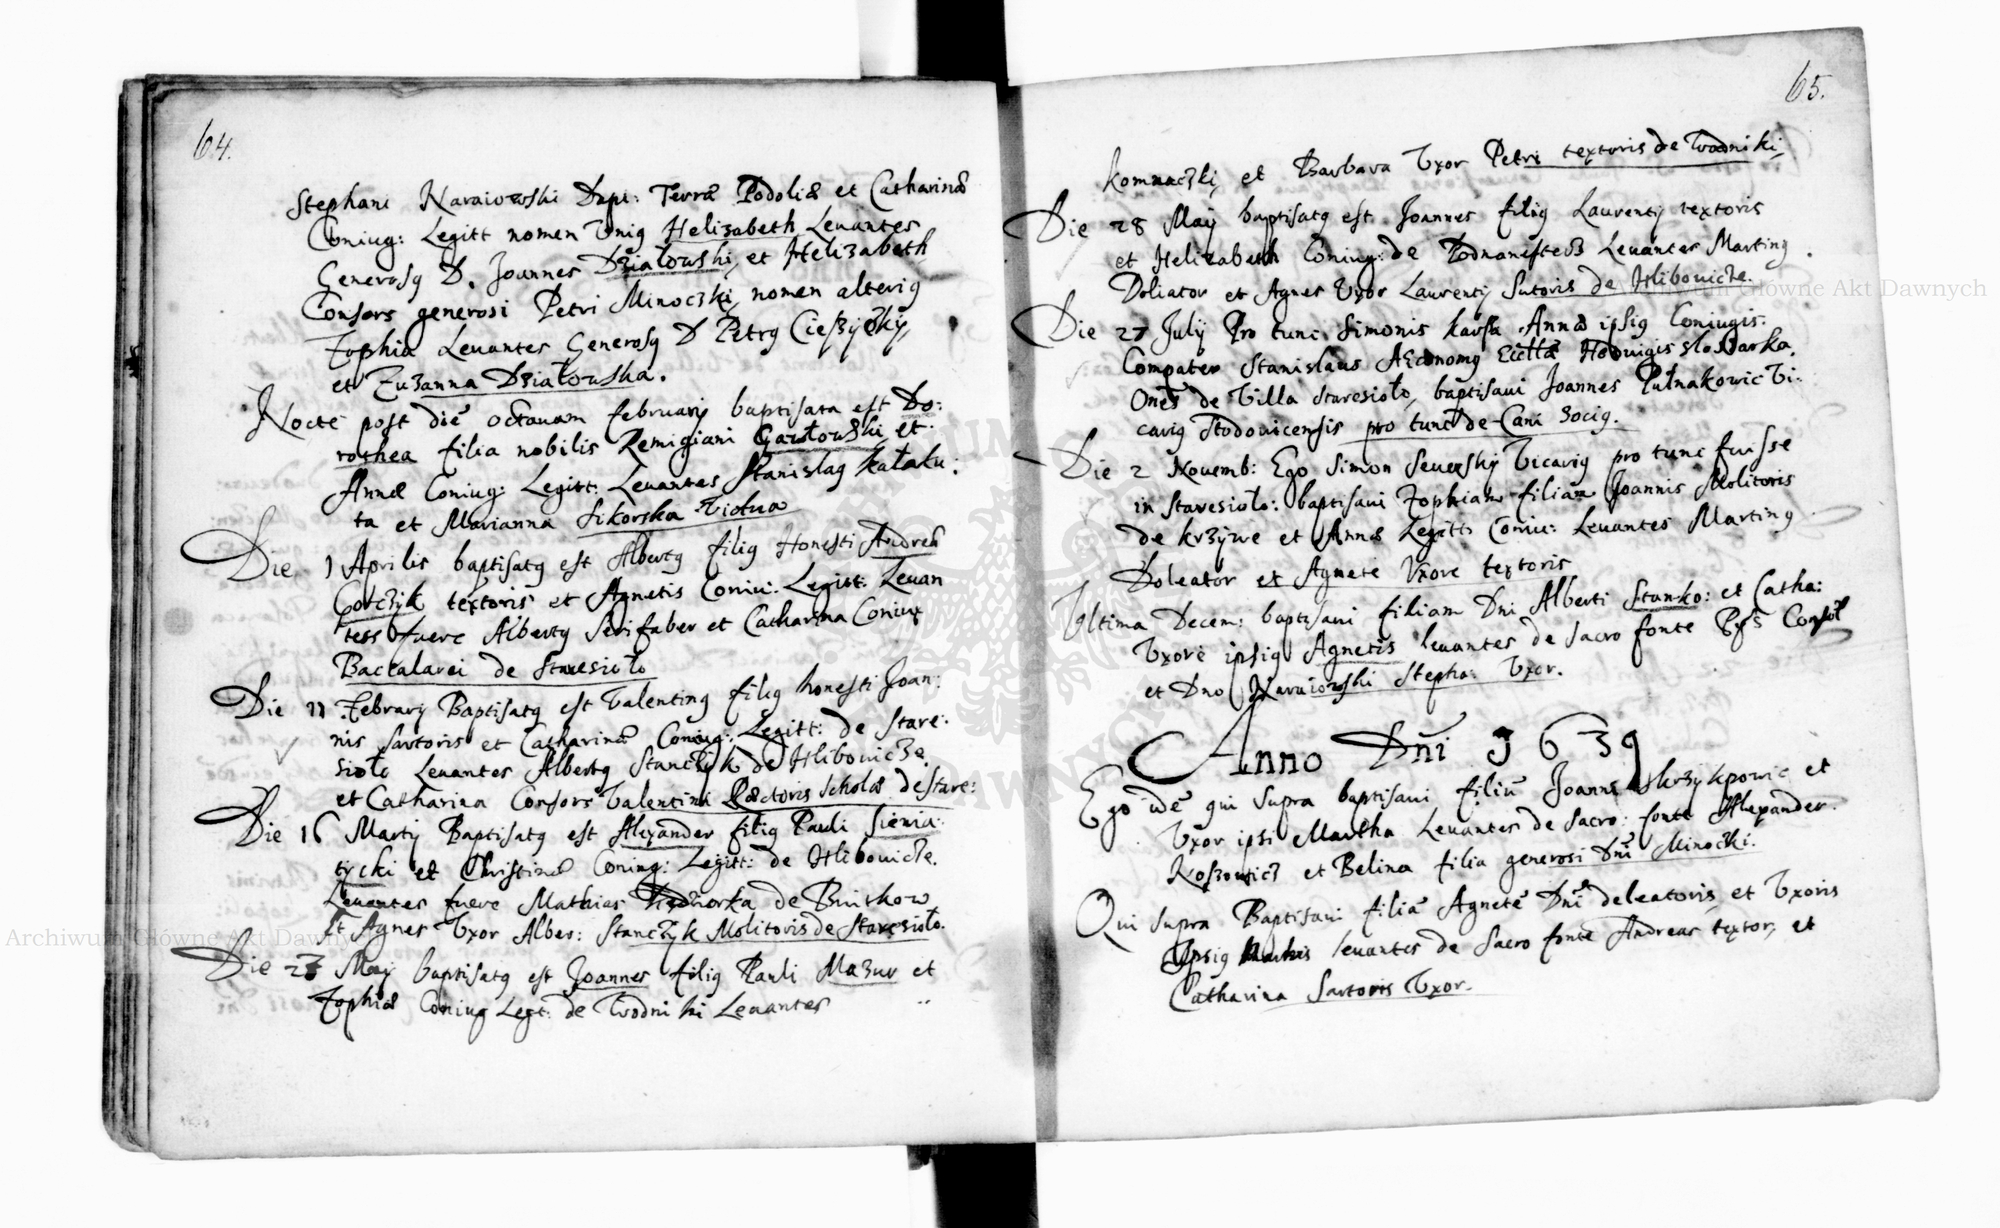 64.
Stephani Naraiowski Dapi: Terræ Podoliæ et Catharinæ
Coniug: Legitt nomen Unig Helizabeth Leuantes
Generosq D. Joannes Działowski, et Helizabeth
Consors generosi Petri Minoczki, nomen alterig
Zophia Leuantes Generosq D Petrq
et Zuzanna Działowska.
Nocte post diē octauam februarij baptisata est Do:
rothea filia nobilis Remigiani Gawłowski, et
Annæ Coniug: Legitt: Leuantes Stanislaq Kałaku:
ta et Marianna Sikorska Vidua
Die 1 Aprilis baptisatq est Albertq filiq Honesti Andreæ
Gorczyk textoris et Agnetis Coniu: Legitt: Leuan
tess fuere Albertq Serifaber et Catharina Coniux
Baccalarei de Staresioło
Die 11 Februarij Baptisatq est Valentinq filiq honesti Joan:
nis Sartoris et Catharinæ Coniug: Legitt: de Stare:
sioło Leuantes Albertq Stanczyk de Hlibovicze
et Catharina Consors Valentini Ræctoris Scholæ de Stare:
Die 16 Martij Baptisatq est Alexander filiq Pauli Sienia:
tycki et Christinæ Coniug: Legitt: de Hlibouicze.
Leuantes fuere Mathias de Brinkow
Et Agnes Vxor Alber: Stanczyk Molitoris de Staresioło.
Die 23 Maij baptisatq est Joannes filiq Pauli Mazur et
Zophiæ Coniug Legt: de Wodniki Leuantes
65.
Komnaczki, et Barbara Vxor Petri textoris de Wodniki,
Die 28 Maij baptisatq est Joannes filiq Laurentij textoris
et Helizabeth Coniug: de Leuantes Martinq
Doliator et Agnes Vxor Laurentij Sutoris de Hlibouicze.
Die 27 Julij Pro tunc Simonis Annæ ipsiq Coniugis.
Compater Stanislaus Æconomq Hedwigis
Onēs de Villa Staresioło, baptisaui Joannes Vi:
cariq Stodovicensis pro tunc de
Die 2 Nouemb: Ego Simon Vicariq pro tunc fuisse
in Staresioło: baptisaui Zophiam filiam Joannis Molitoris
de Krzywe et Annæ Legitt: Coniu: Leuantes Martinq
Doleator et Agnete Vxore textoris
Vltima Decem: baptisaui filiam Dni Alberti Stanko: et Catha:
Vxorē ipsiq Agnetis leuantes de sacro fonte
et Dno Naraiowski Stepha: Vxor.
Anno Dñi 1639
Ego idē qui supra baptisaui filiū Joannis Skrzykpowic et
Vxor ipsi Martha Leuantes de Sacro: fonte Alexander
et Belina filia generosi Dñi Minoczki.
Qui supra Baptisaui filiā Agnetē Dñi deleatoris, et Vxoris
Ipsiq leuantes de Sacro fonte Andreas textor, et
Catharina Sartoris Vxor.
Archiwum Główne Akt Dawnych
Archiwum Główne Akt Dawnych